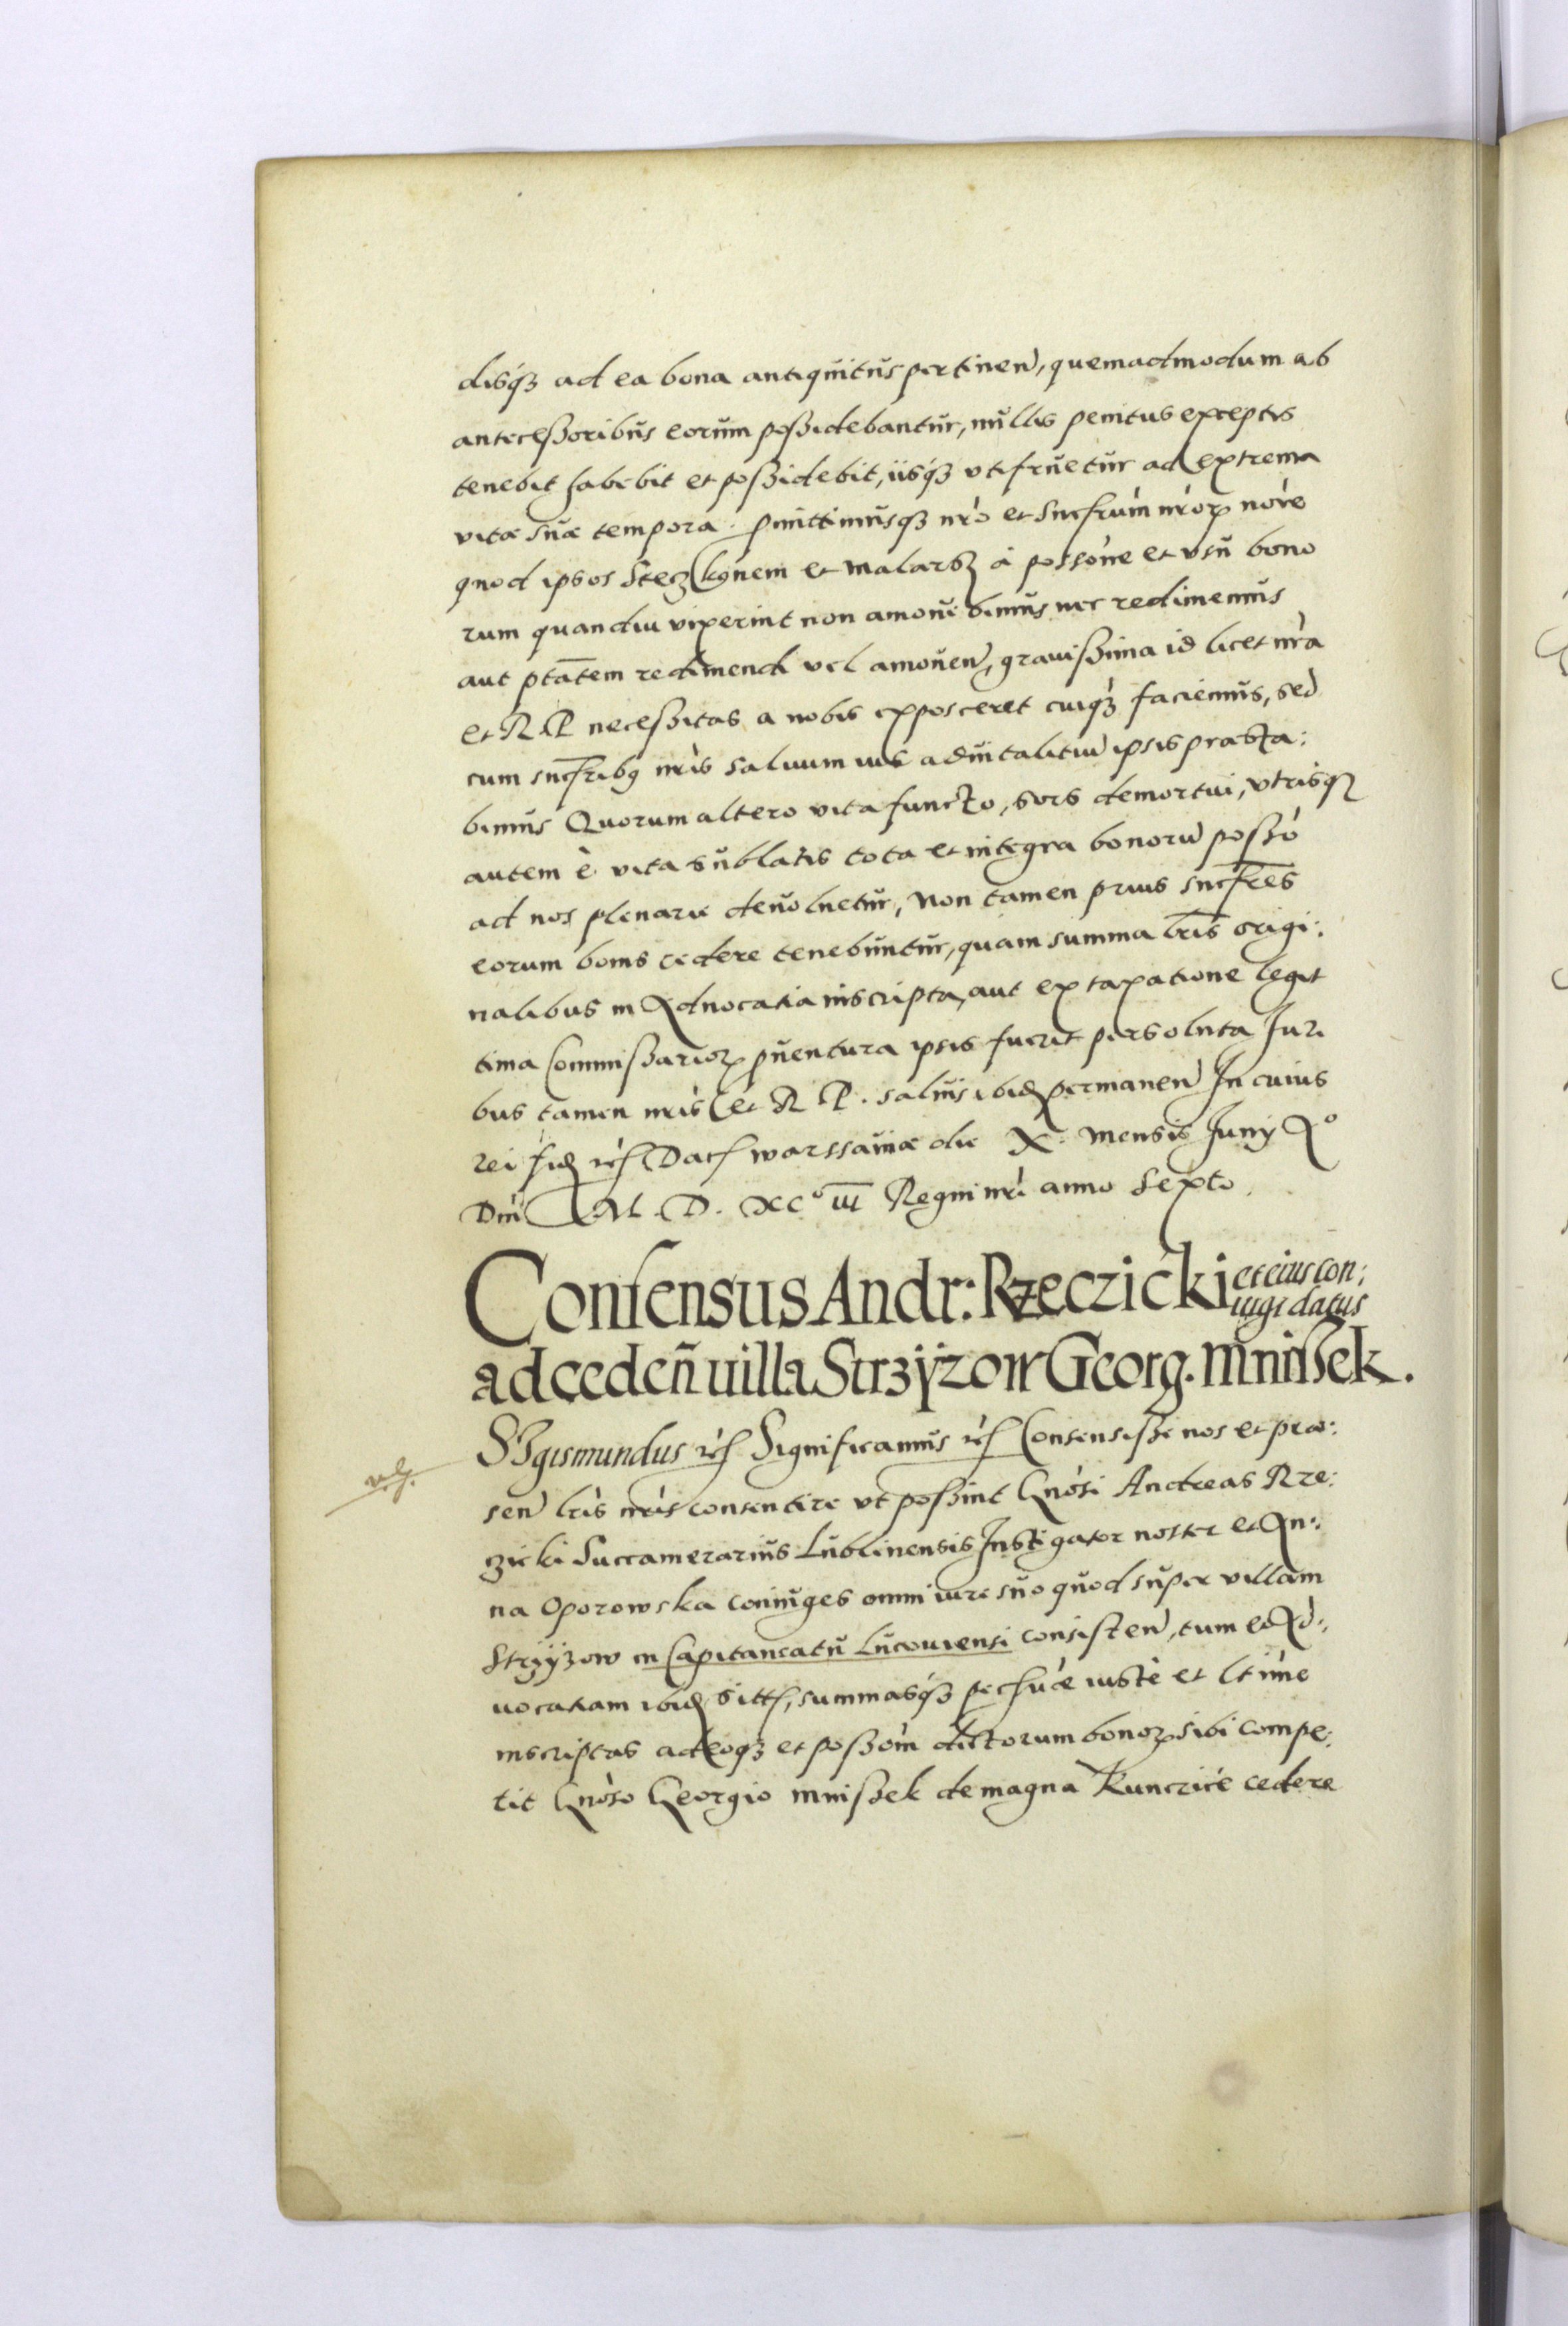 disq́ꝫ ad ea bona antiquitus pertineñ, quemadmodum ab
antecessoribus eorum possidebantur, nullis penitus exceptis
tenebit habebit et possidebit, iisq́ꝫ vtifruetur ad extrema
vitæ suæ tempora. pmittimusqꝫ nrò et Sucſrum nrorꝝ nòie
quod ipsos à possòne et vsu bono
rum quandiu vixerint non amouebimus nec redimemus
aut ptãtem redimendi vel amoueñ, gravissima id licet nrà
et R P necessitas a nobis exposceret cuiq́ꝫ faciemus, sed
cum sucſribꝫ nris saluum ius aduitalitiũ ipsis præsta:
bimus Quorum altero vita functo, sors demortui, vtrisqꝫ
autem è vita sublatis tota et integra bonorũ possò
ad nos plenarie deuoluetur, Non tamen prius sucſres
eorum bonis cedere tenebuntur, quam summa lr̃is origi:
nalibus in Aduocatia inscripta, aut ex taxatione legit
tima Commissariorꝝ ꝓuentura ipsis fuerit persoluta Juri
bus tamen nris et R P. saluis ibidꝫ permaneñ In cuius
rei fidꝫ etc Dat Warssaviæ die X. Mensis Junij Aº
Dni M. D. XCº III Regni nri anno Sexto.
Consensus Andr: Rzeczicki et eius con:
iugi datus
ad cedeñ uilla Strzyżow Georg. Mnissek.
SIgismundus etc Significamus etc Consensisse nos et præ:
señ lr̀is nris consentire vt possint Gñosi Andreas Rze:
czicki Succamerarius Lublinensis Instigator noster et An:
na Oporowska coniuges omni iure suo quod super villam
Strzyżow in Capitaneatu Lucouiensi consisteñ, tum et Ad:
uocatiam ibidꝫ sitt, summasq́ꝫ pec suæ iustè et ltìme
inscriptas adeoqꝫ et possoìm dictorum bonorꝝ sibi compe:
tit Gñoso Georgio Mnissek de magna Kunczicé cedere